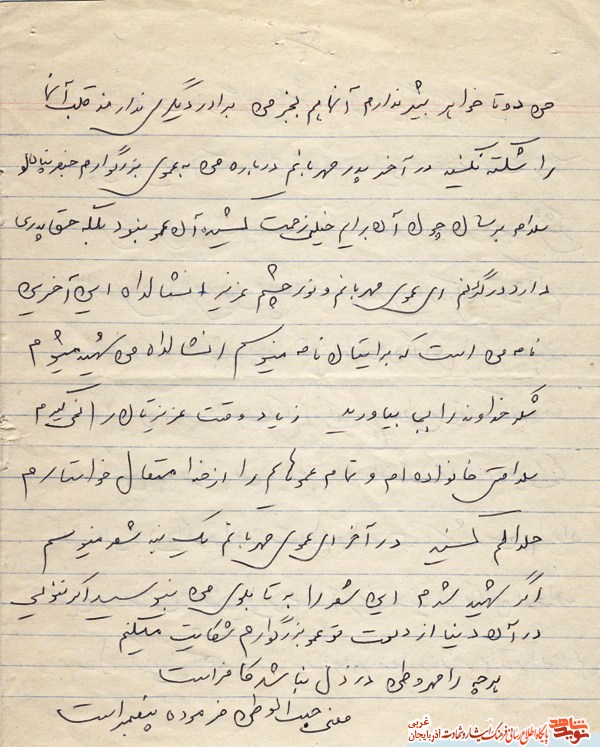 من دو تا خواهر بیشتر ندارم آنها هم بجز من برادر دیگری ندارند قلب آنها
را شکسته نکنید در آخر پدر مهربانم درباره من به عموی بزرگوارم
سلام برسان چون آن برایم خیلی زحمت کشیده آن عمو نبود بلکه حق پدری
دارد در گردنم ای عموی مهربانم و نور چشم عزیز انشالداه این آخرین
نامه من است که برایتان نامه مینویسم انشالداه من شهید میشوم
شکر خداوند را بجا بیاورید زیاد وقت عزیزتان را نمی‌گیرم
سلامتی خانواده ام و تمام عموهایم را از خدا متعال خواستارم
حلالم کنید در آخر ای عموی مهربانم یک بند شعر مینویسم
اگر شهید شدم این شعر را به تابلوی من بنویسید اگر ننویسی
در آن دنیا از دست تو عمو بزرگوارم شکایت میکنم
هر چه را مهر وطن در دل نباشد کافر است
معنی حب الوطن فرموده پیغمبر است
نوید شاهد آذربایجان غربی
پایگاه اطلاع رسانی فرهنگ ایثار و شهادت